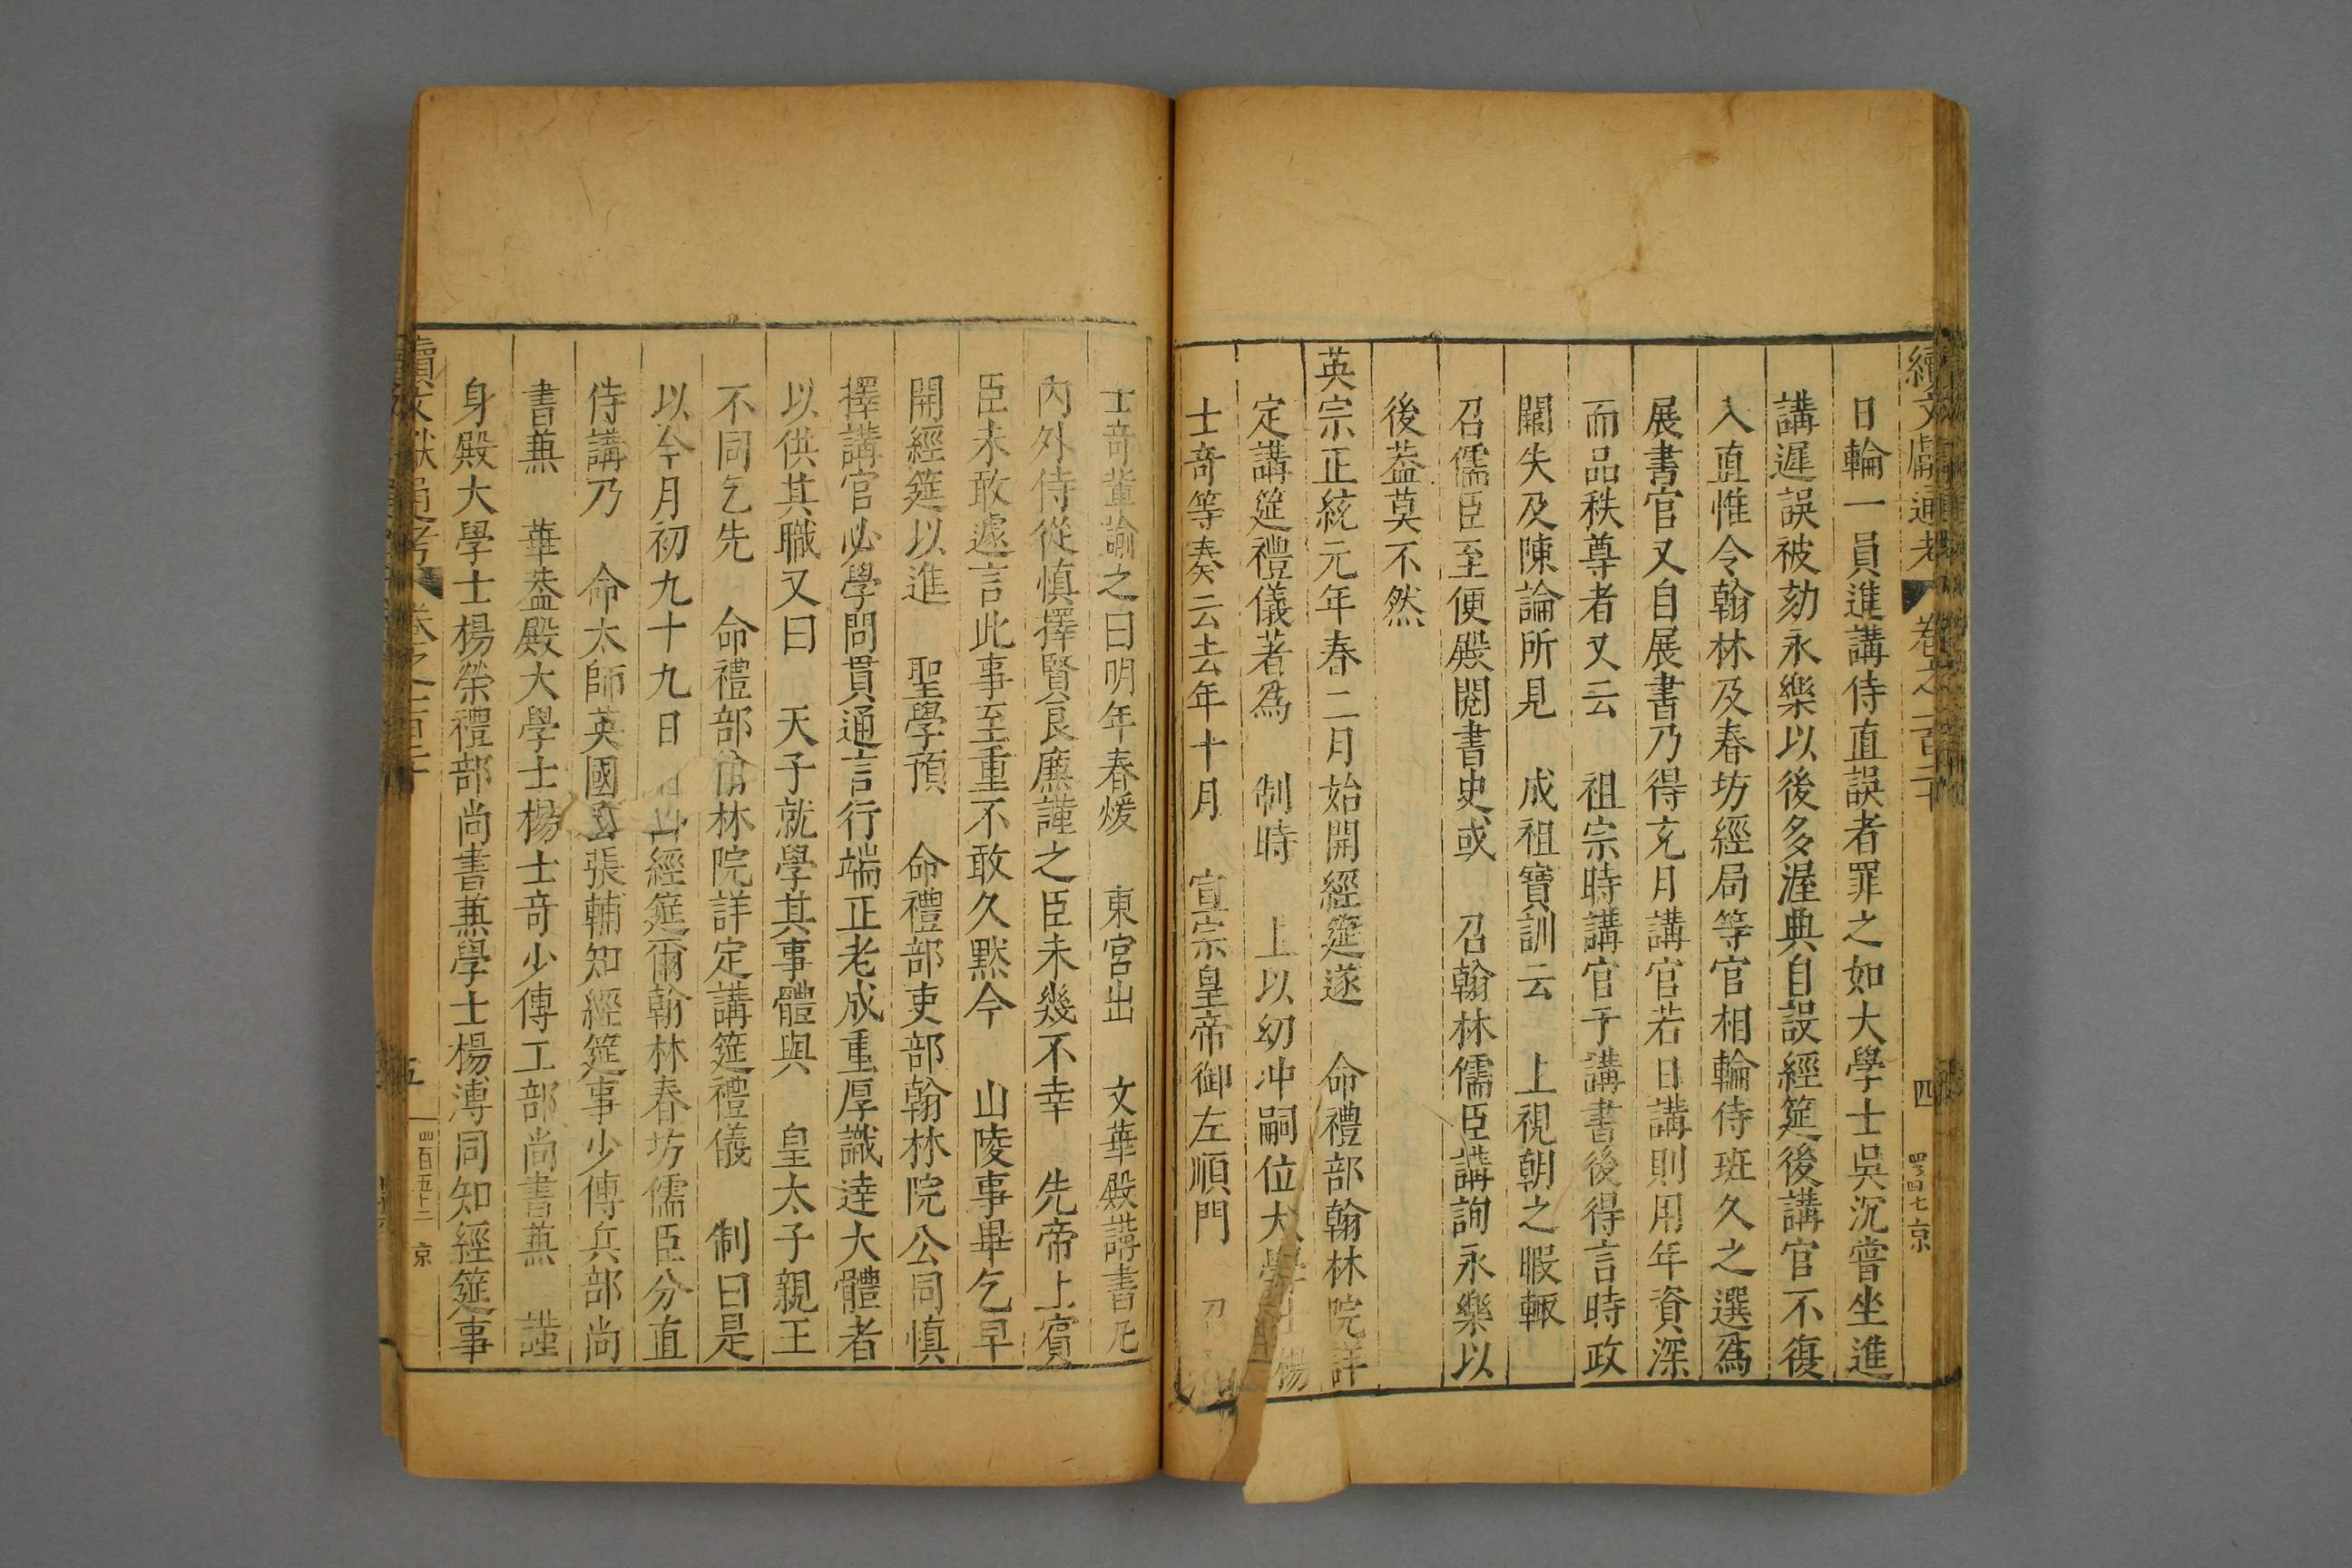 續文獻通考 卷之一百二十 四 四百四七 京
日輪一員進講侍直誤者罪之如大學士吳沉嘗坐進
講遲誤被劾永樂以後多渥典自設經筵後講官不復
入直惟令翰林及春坊經局等官相輪侍班久之選爲
展書官又自展書乃得充月講官若日講則用年資深
而品秩尊者又云 祖宗時講官予講書後得言時政
闕失及陳論所見 成祖寶訓云 上視朝之暇輙
召儒臣至便殿閱書史或 召翰林儒臣講詢永樂以
後葢莫不然
英宗正統元年春二月始開經筵遂 命禮部翰林院詳
定講筵禮儀著爲 制時 上以幼冲嗣位大學士楊
士竒等奏云去年十月 宣宗皇帝御左順門 召
士竒軰諭之曰明年春煖 東宮出 文華殿講書凡
內外侍從愼擇賢良廉謹之臣未幾不幸 先帝上賓
臣未敢遽言此事至重不敢久黙今 山陵事畢乞早
開經筵以進 聖學預 命禮部吏部翰林院公同愼
擇講官必學問貫通言行端正老成重厚識逹大體者
以供其職又曰 天子就學其事體與 皇太子親王
不同乞先 命禮部翰林院詳定講筵禮儀 制曰是
以今月初九十九日 經筵爾翰林春坊儒臣分直
侍講乃 命太師英國公張輔知經筵事少傅兵部尚
書兼 華葢殿大學士楊士竒少傅工部尚書兼 謹
身殿大學士楊榮禮部尚書兼學士楊溥同知經筵事
續文獻通考 卷之一百二十 五 四百五十二 京